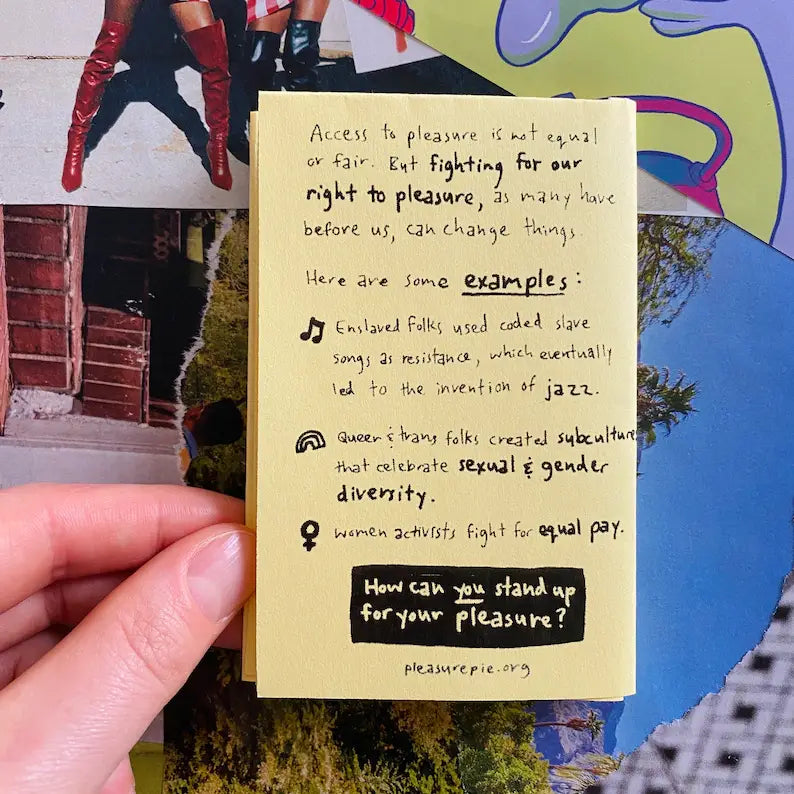 Access to pleasure is not equal
or fair. But fighting for our
right to pleasure, as many have
before us, can change things.
Here are some examples:
Enslaved folks used coded slave
songs as resistance, which eventually
led to the invention of jazz.
Queer & trans folks created subcultures
that celebrate sexual & gender
diversity.
Women activists fight for equal pay.
How can you stand up
for your pleasure?
pleasurepie.org